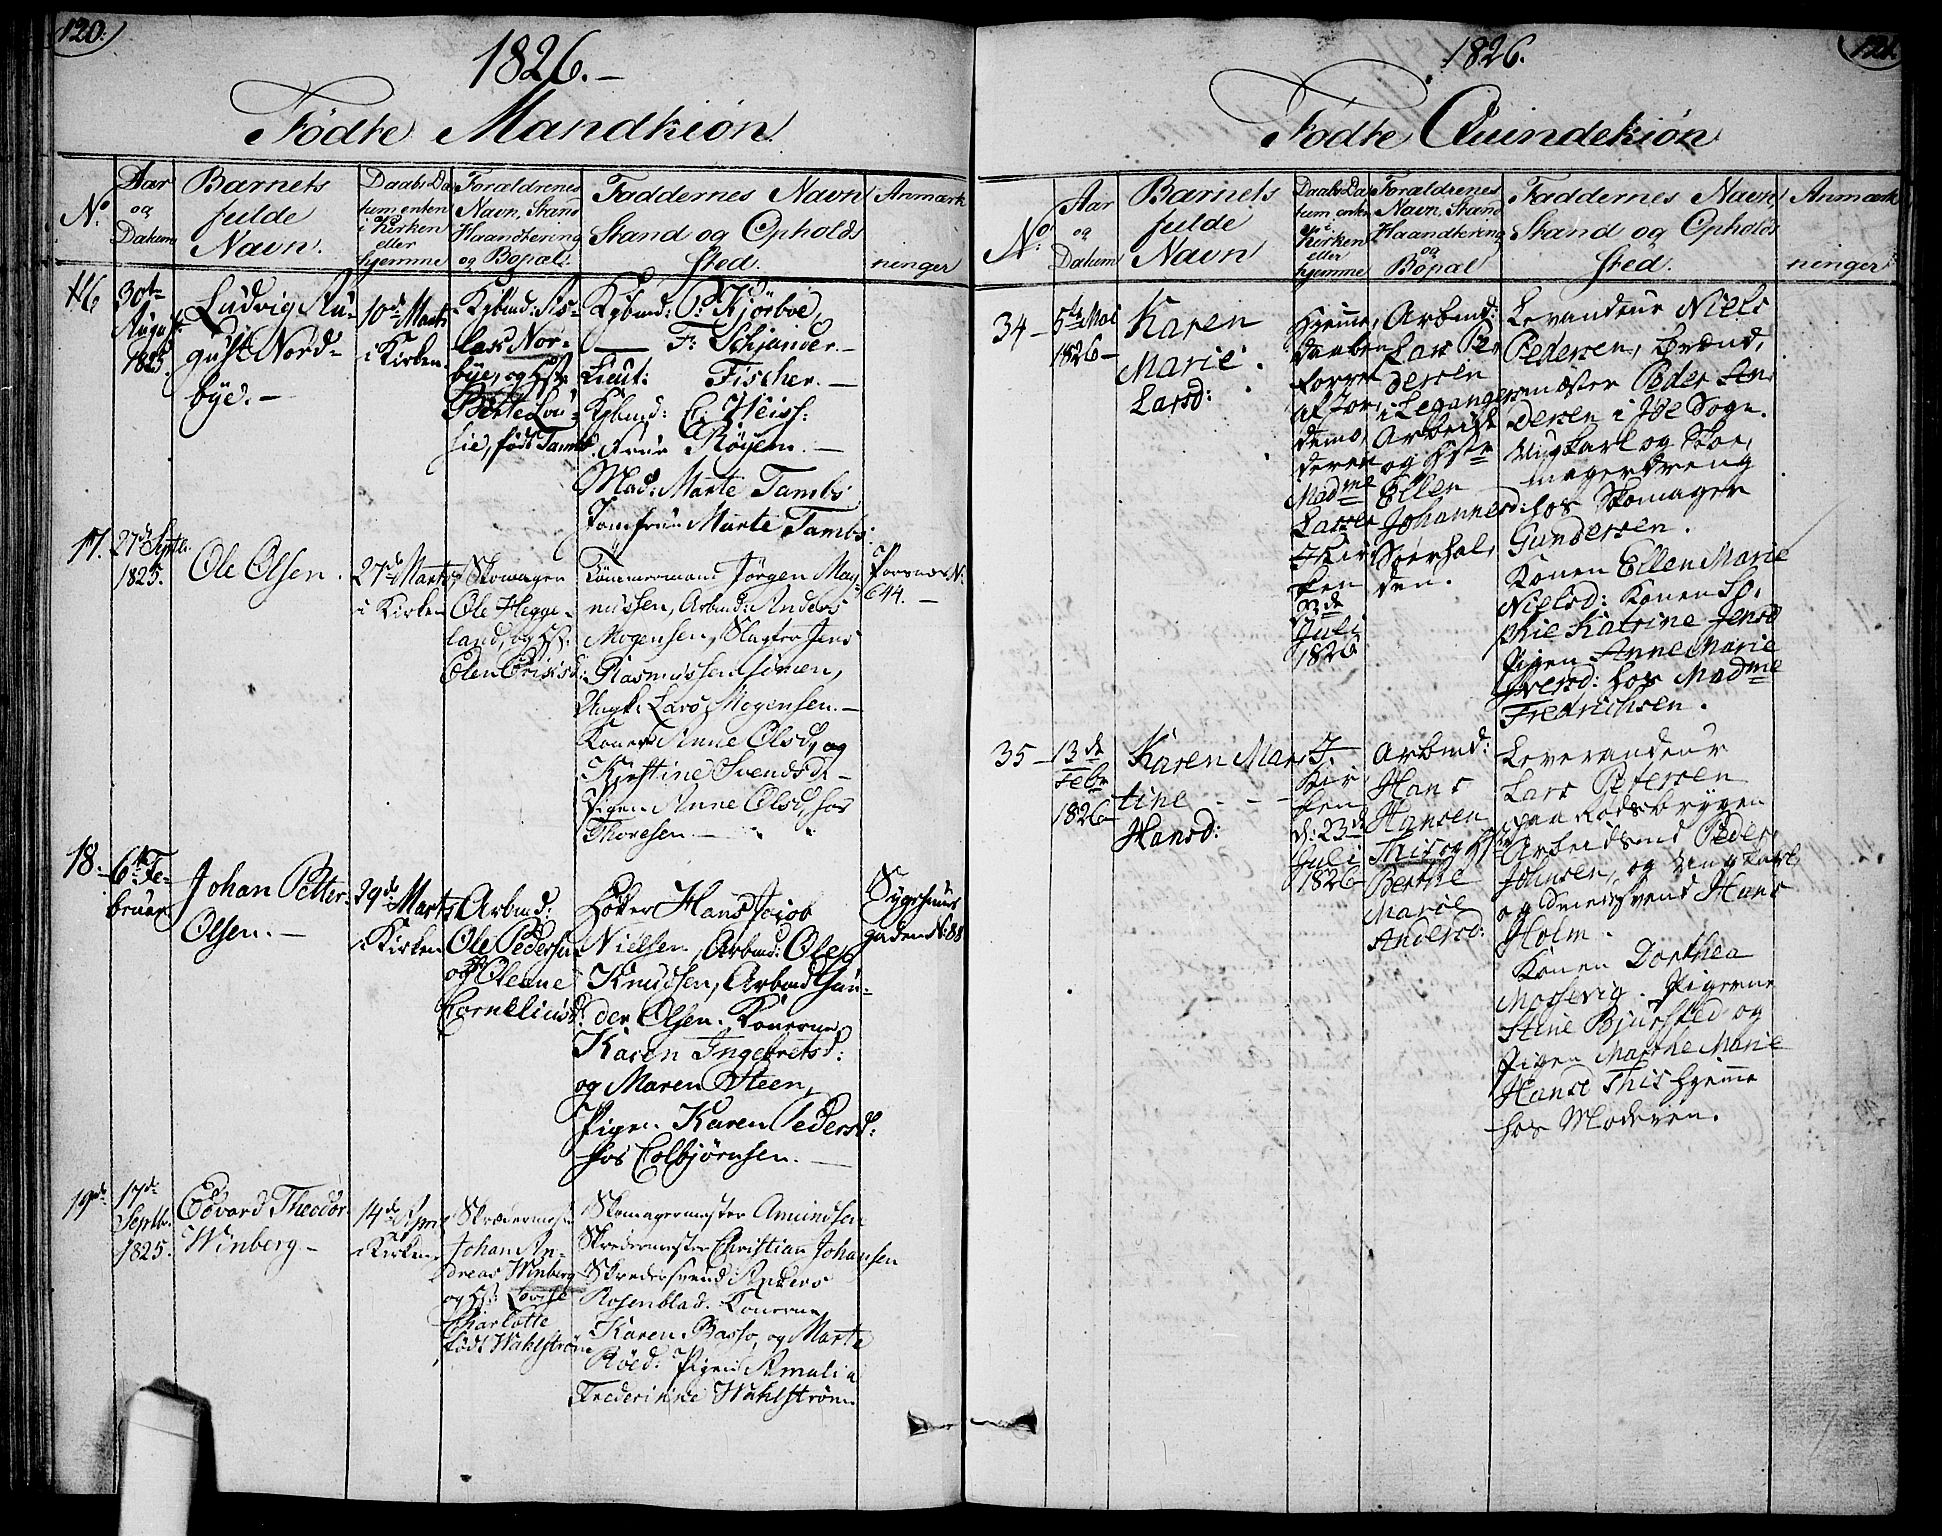 120.
1826.
Födte Mandkiön
No.
Aar
og
Datum
Barnets
fulde
Navn.
Daabs Da
tum enten
i Kirken
eller
hjemme
Foraldrenes
Navn, Stand
Haandtering
og Bopæl.
Faddernes Navn
Stand og Opholds
sted.
Anmærk
ninger
16
30te
August
1825.
Ludvig Au-
gust Nord-
bye.
10de Marts
i Kirken
Kjbmd:
Nor-
bye, og Hst:
Birte Lou-
sie, født Tambs.
Kjbmd: P: Kjörboe,
F: Schjander.
Lieut: Fischer.
Kjbmd: C: Heiss:
Frue Röyem.
Mad: Marte Tambs
Jomfrue Marte Tambs.
17.
27de Septbr.
1825.
Ole Olsen.
27de Marts
i Kirken
Skomager
Ole Hegge-
land, og Hst:
Olen Eriksd:
Tömmermand Jörgen Mag-
nussen, Arbmd: Anders
Mogensen, Slagter Jens
Rasmussen
Ungk: Lars Mogensen.
Konerne Anne Olsd, og
Kjestine Svendsd.
Pigen Anne Olsd, hos
Thoresen.
N:
644.
18.
6te Fe-
bruar
Johan Petter
Olsen.
29de Marts
i Kirken
Arbmd:
Ole Pedersen
og Olenne
Cornelius d:
Höker Hans Jacob
Nielsen, Arbmd: Ole
Knudsen, Arbmd Gun-
der Olsen. Konerne
Karen Ingebretsd:
og Maren Steen,
Pigen Karen Pedersd:
hos Colbjörnsen.
Sygehuus
gaden N: 88
19de
17de
Septb.
1825.
Edvard Theodor
Winberg
14de April
i Kirken
Skrædermester
Johan An-
dreas Winberg
og Hst: Lovise
Charlotte
födt Wahlström
Skomagermester Amundsen
Skredermester Christian Johansen
Skredersvend Anders
Rosenblad. Konerne
Karen Basso, og Marte
Röed. Pigen Amalia
Frederikke Wahlström
121.
1826.
Födte Quindekiön
No.
Aar
og
Datum
Barnets
fulde
Navn
Daabs Da
tum enten
i
Kirken
eller
hjemme
Foraldrenes
Navn, Stand
Haandtering
og
Bopæl
Faddernes Navn
Stand og Opholds
sted.
Anmærk
ninger
34
5te Mai
1826
Karen
Marie
Larsd:
Hjemme,
daaben
forret
af Jor,
demo,
deren
Madme
Larsen
I Kir
ken
23de
Juli
1826
Arbmd:
Lars Pe
dersen
i Leganger
Arbeide
og Hste
Ellen
Johannesd:
Soerhal,
den.
Levandeur Niels
Pedersen, Brænd,
mester Peder An,
dersen i Ide Sogn.
Ungkarl og Skoe,
magerdreng
hos Skomager
Gundersen.
Konen Ellen Marie
Nielsd: Konen So,
phie Katrine Jensd
Pigen Anne Marie
Iversd: hos Madme
Fredrichsen.
35
13de
Febr
1826
Karen Mar
tine
Hansd:
I
Kir
ken
d: 23de
Juli
1826
Arbmd:
Hans
Hansen
This og Hste
Berthe
Marie
Andersd:
Leverandeur
Lars Petersen
paa Rødsbryggen
Arbeidsmd Peder
Johnsen, og Ungkarl
og Smedsvend Hans
Holm.
Konen Dorthea
Mossevig. Pigerne
Stine Bjursted og
Pigen Marthe Marie
Hansd This hjemme
hos Moderen.